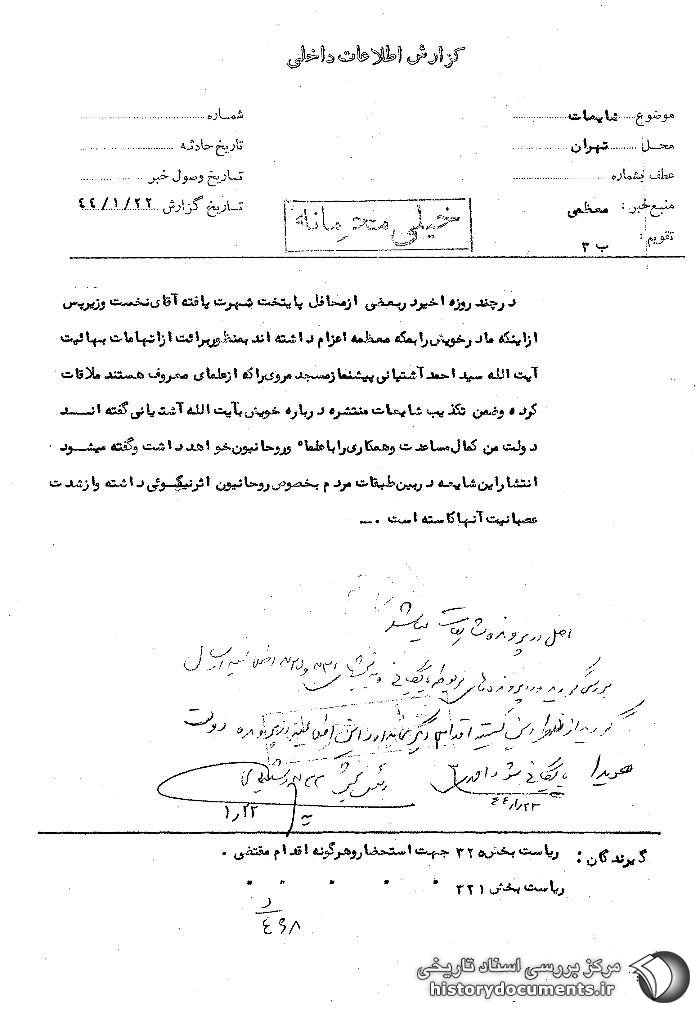 گزارش اطلاعات داخلی
موضوع شایعات
شماره
محل تهران
تاریخ حادثه
عطف بشماره
تاریخ وصول خبر
منبع خبر: معظمی
تاریخ گزارش ۴۴/۱/۲۲
تقویم: ب ۳
خیلی محرمانه
در چند روزه اخیر در بعضی از محافل پایتخت شهرت یافته آقای نخست وزیر پس
از اینکه مادر خویش را بمکه معظمه اعزام داشته اند بمنظور برائت از اتهامات بهائیت
آیت الله سید احمد آشتیانی پیشنماز مسجد مروی را که از علمای معروف هستند ملاقات
کرده و ضمن تکذیب شایعات منتشره درباره خویش بآیت الله آشتیانی گفته انـــد
دولت من کمال مساعدت و همکاری را با علماء و روحانیون خواهد داشت و گفته میشود
انتشار این شایعه در بین طبقات مردم بخصوص روحانیون اثر نیکوئی داشته و از شدت
عصبانیت آنها کاسته است .ــ
اصل در پرونده شایعات میباشد
گردید از نظر این اقدام دیگری ندارد در پرونده دولت
هویدا بایگانی شود
۴۴/۱/۲۳
۱/۲۲
گیرندگان: ریاست بخش ۳۲۵ جهت استحضار و هرگونه اقدام مقتضی .
ریاست بخش ۳۲۱ " " " " "
د
۴۹۸
مرکز بررسی اسناد تاریخی
historydocuments.ir